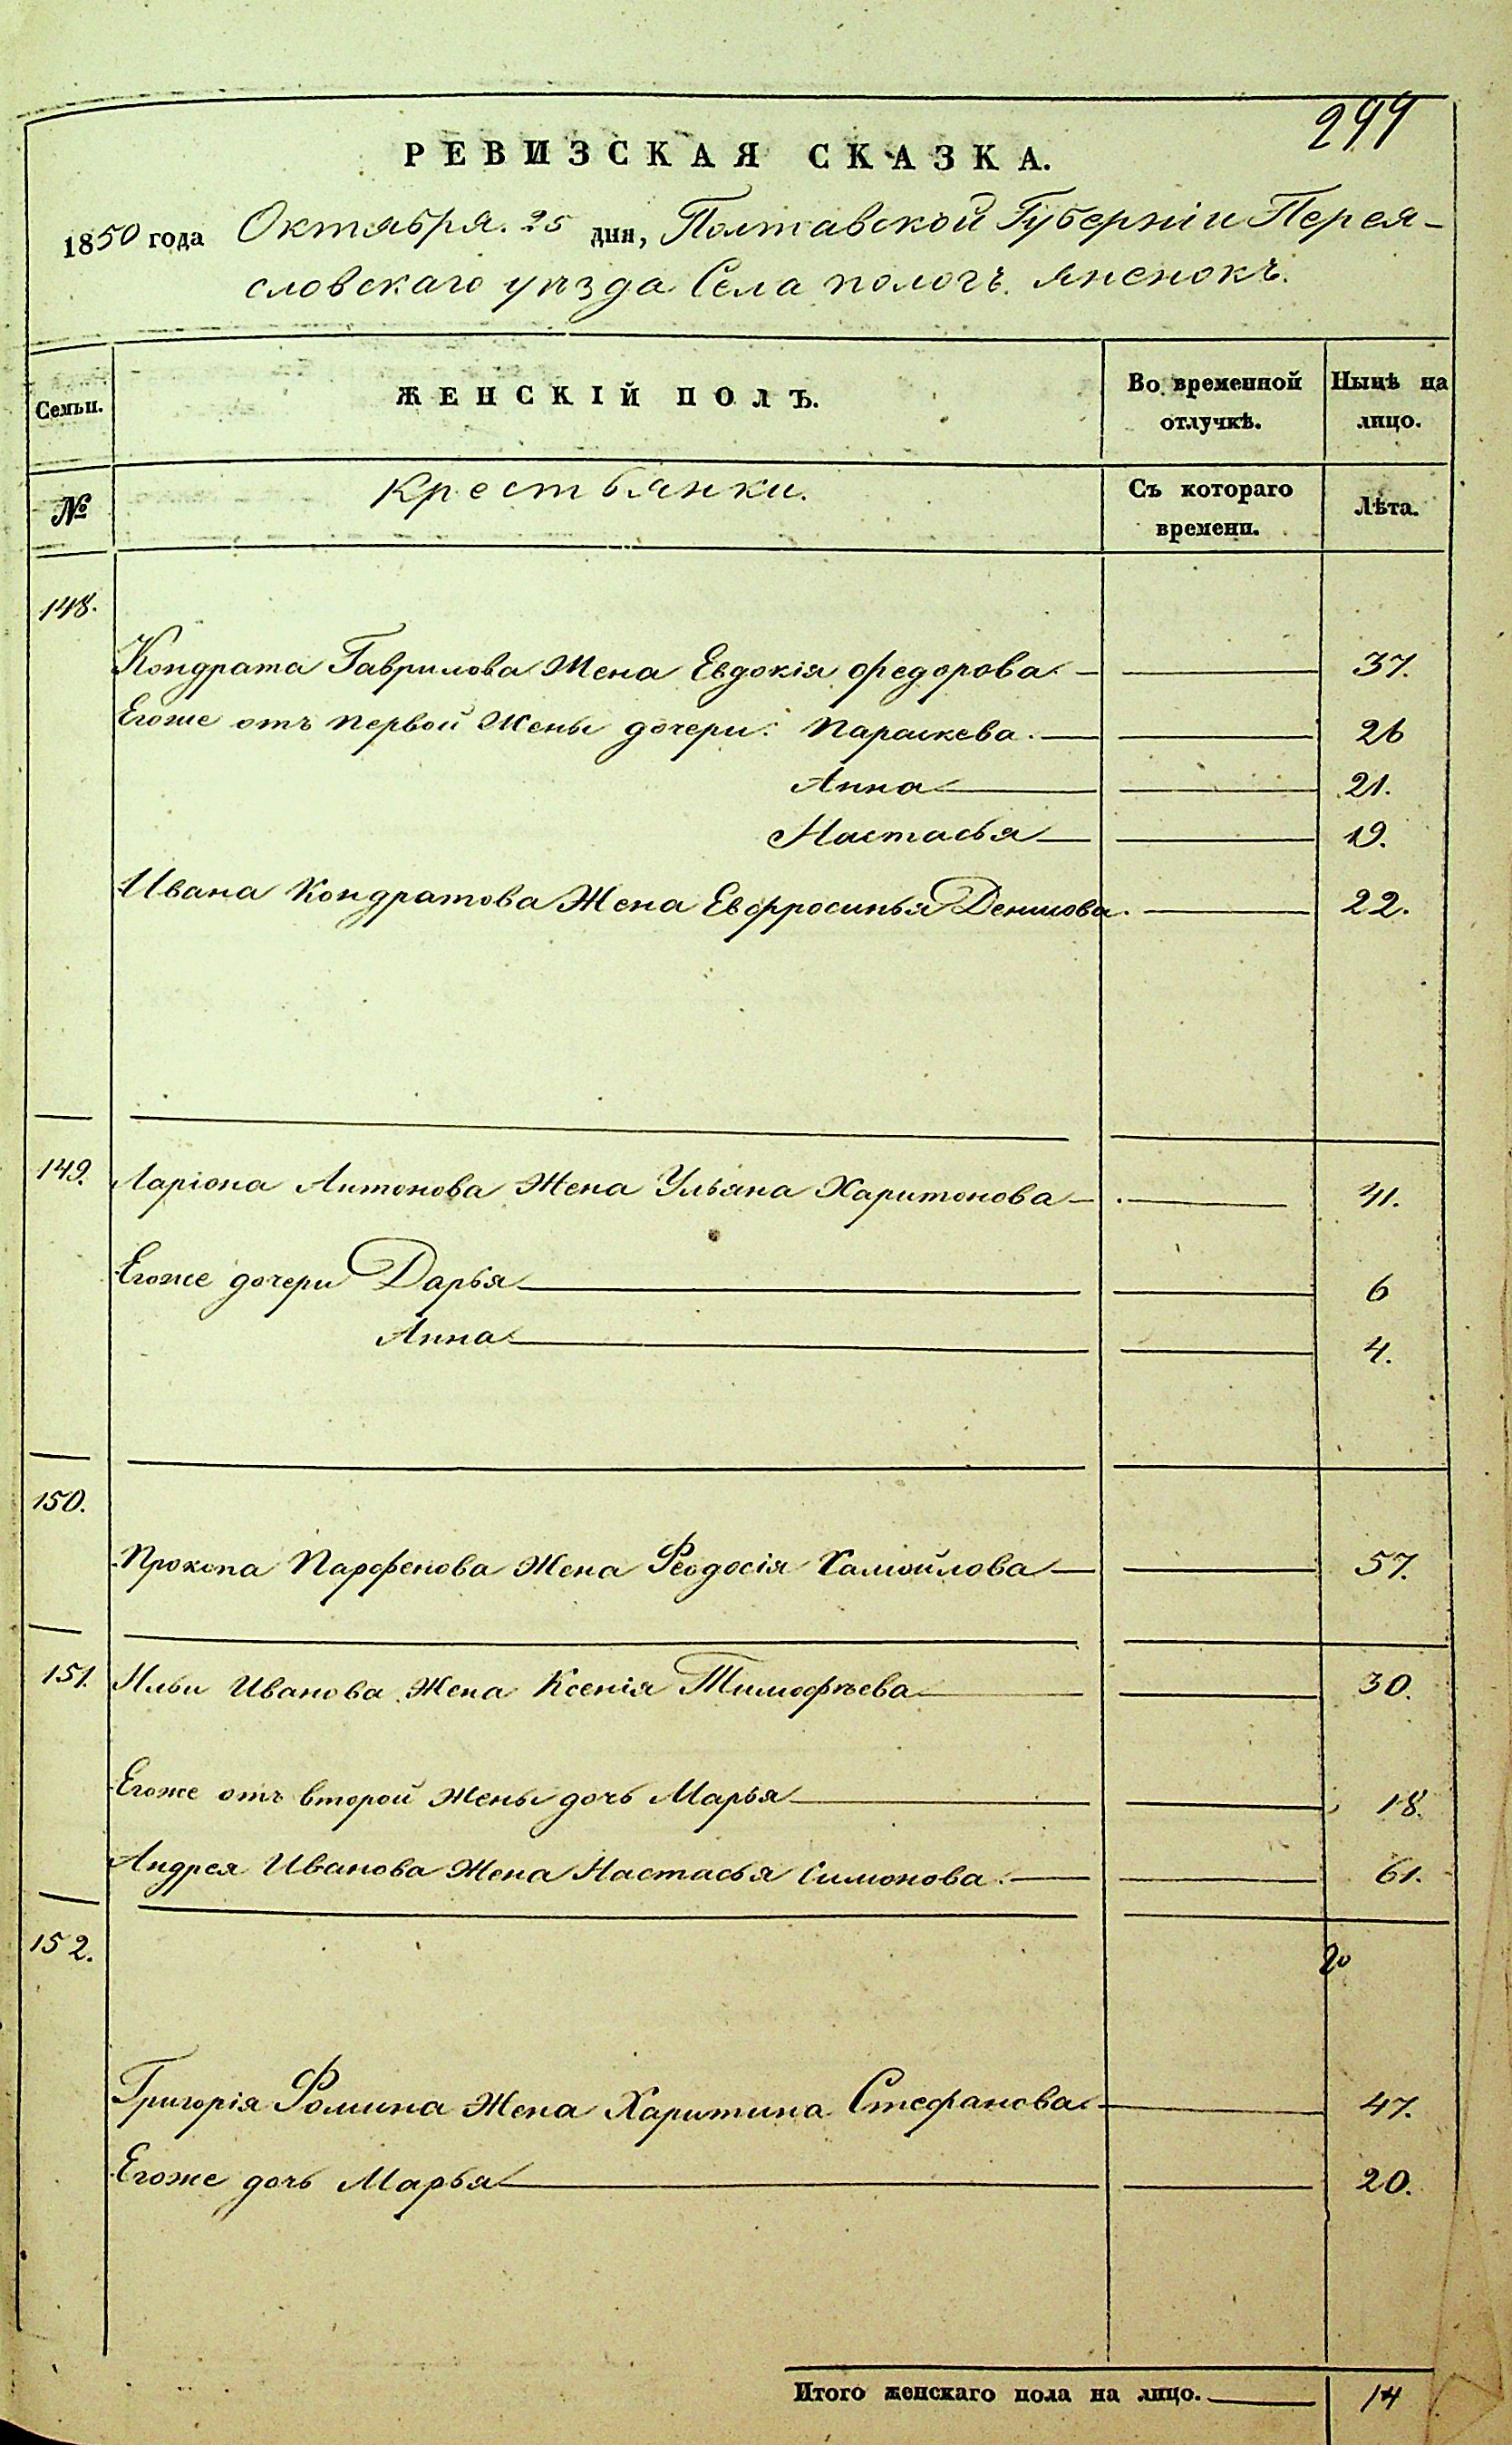 299
РЕВИЗСКАЯ СКАЗКА.
1850 года Октября. 25 дня, Полтавской Губерніи Перея-
словскаго уѣзда Села пологъ яненокъ.
Семьи. ЖЕНСКІЙ ПОЛЪ. Во временной отлучкѣ. Нынѣ на лицо.
№ Крестьянки. Съ котораго времени. Лѣта.
148.
Кондрата Гаврилова Жена Евдокія федорова 37.
Егоже отъ первой Жены дочери: Параскева. 26
Анна 21.
Настасья 19.
Ивана Кондратова Жена Евфросинья Денисова. 22.
149. Ларіона Антонова Жена Ульяна Харитонова 41.
Егоже дочери Дарья 6
Анна 4.
150.
Прокопа Парфенова Жена Феодосія Самойлова 57.
151. Ильи Иванова Жена Ксенія Тимофѣева 30.
Егоже отъ второй Жены дочь Марья 18.
Андрея Иванова Жена Настасья Симонова. 61.
152.
Григорія Фомина Жена Харитина Стефанова 47.
Егоже дочь Марья 20.
Итого женскаго пола на лицо. 14